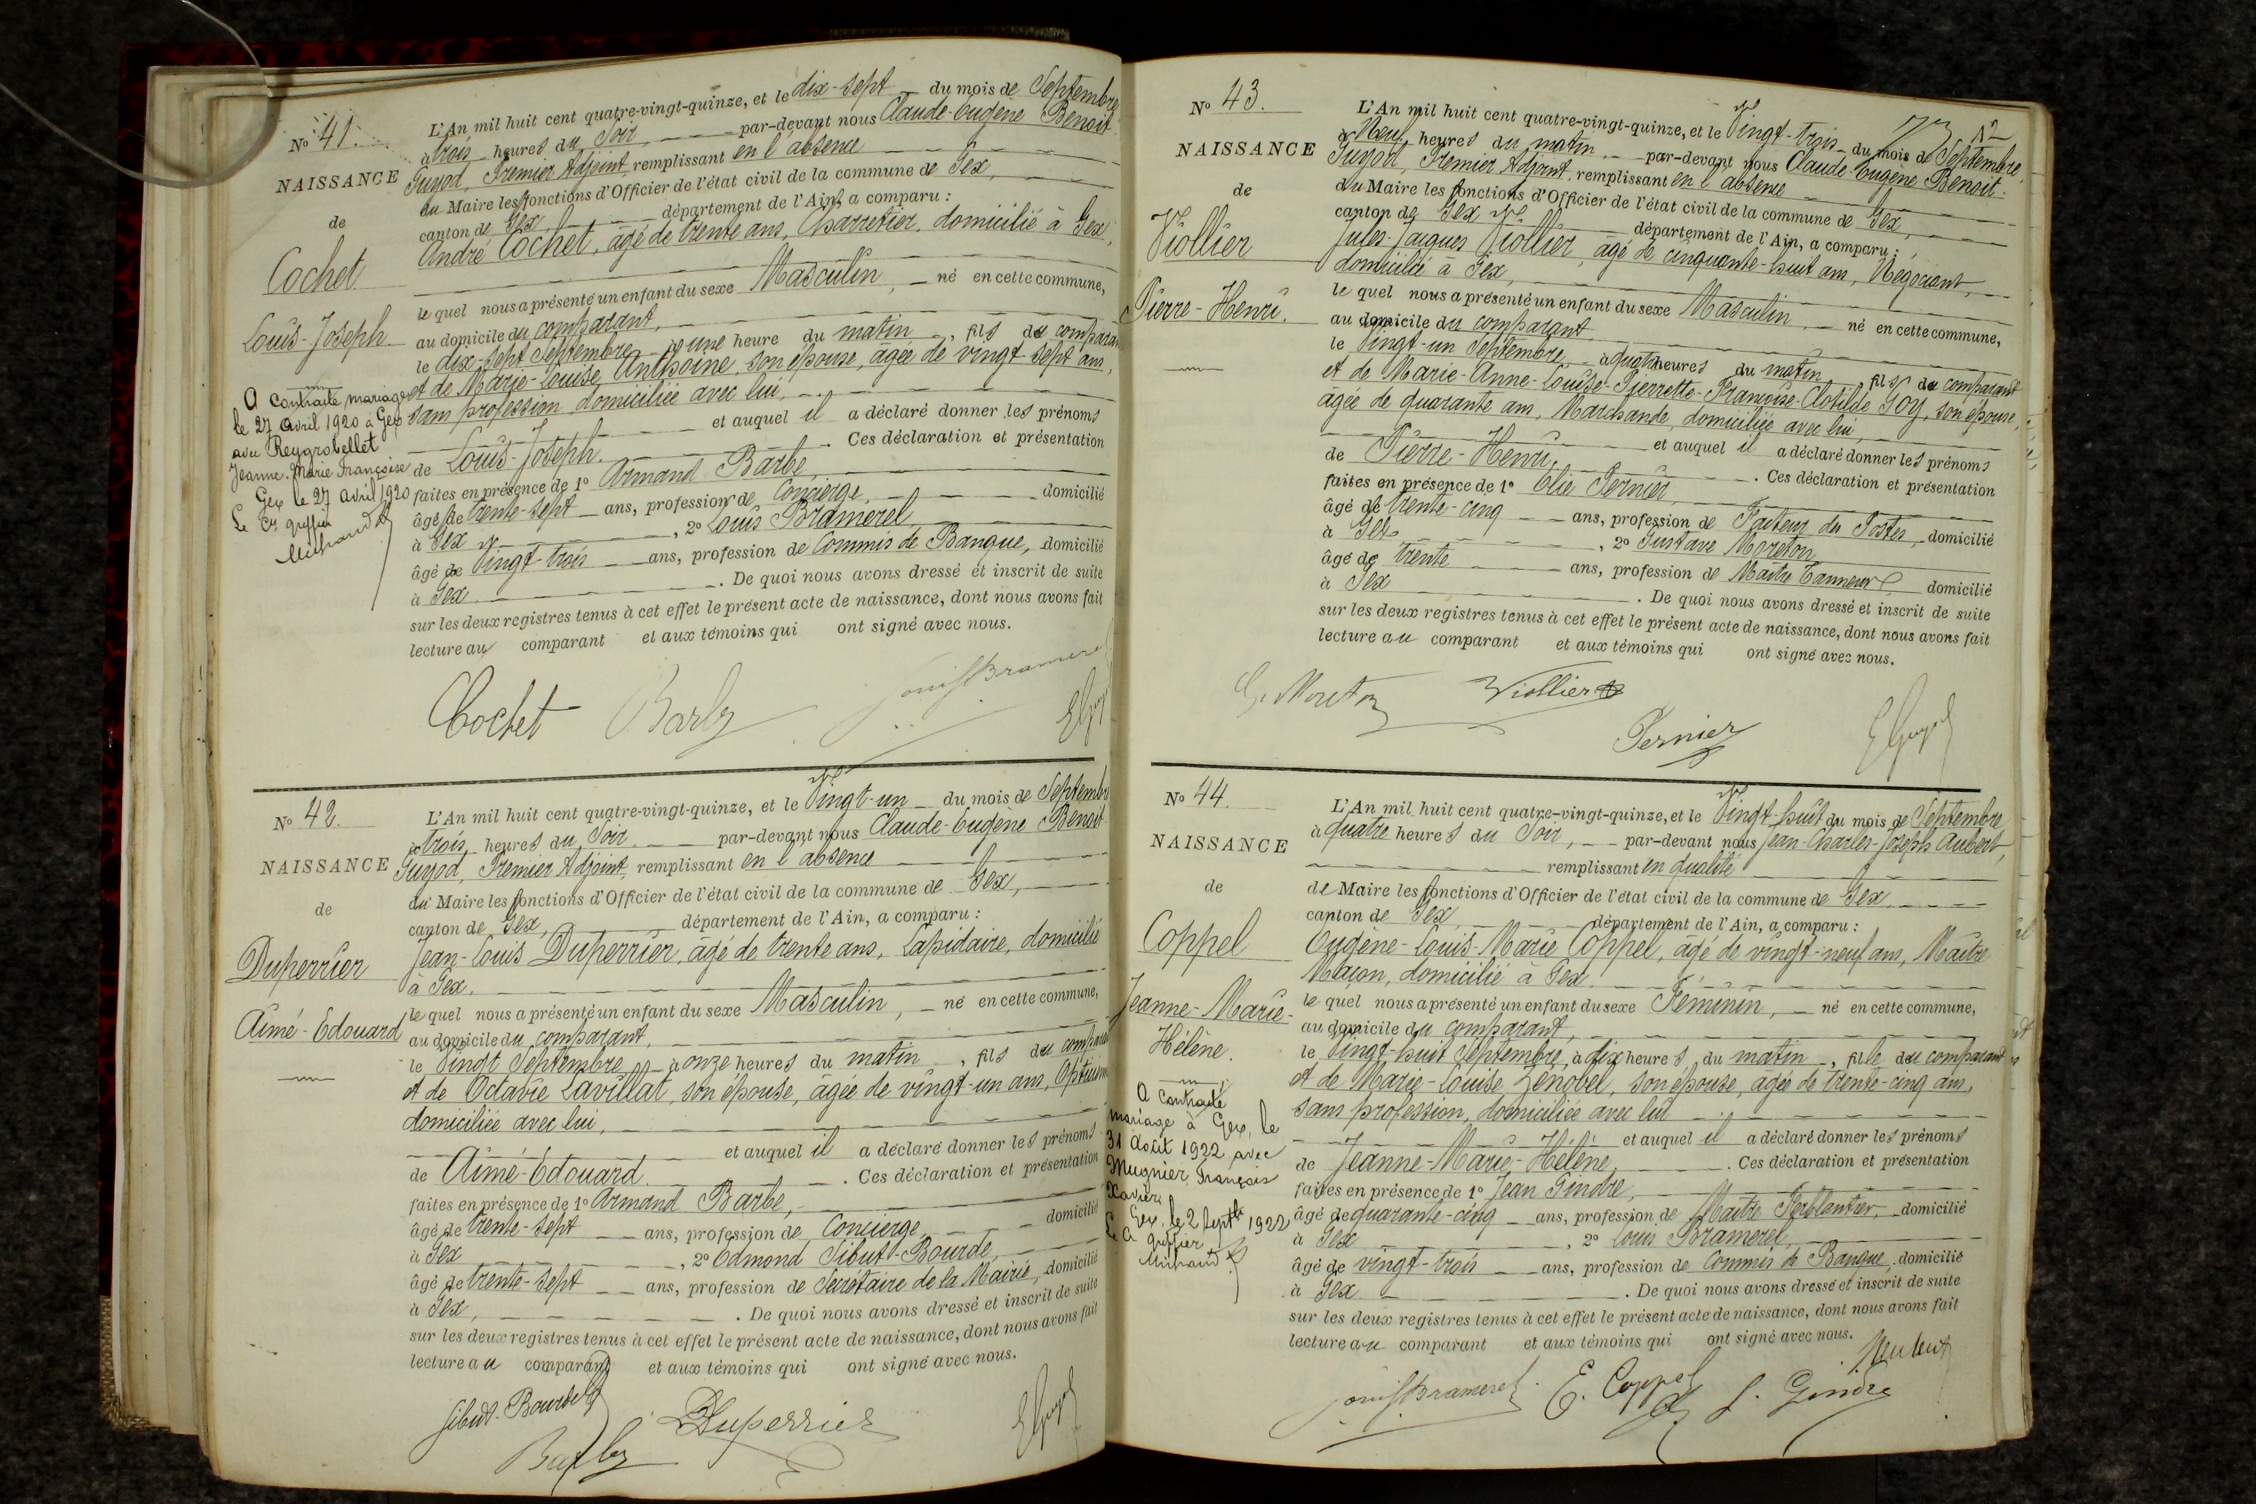 No 41.
NAISSANCE
de
Cochet
Louis-Joseph
A contracté mariage
le 27 avril 1920 à Gex
avec Reygrobellet
Jeanne-Marie Françoise
Gex le 27 avril 1920
Le Cis greffier
L'An mil huit cent quatre-vingt-quinze, et le dix-sept du mois de Septembre
à trois heures du Soir, par-devant nous Claude-Eugène Benoit
Guyod, Premier Adjoint, remplissant en l'absence
du Maire les fonctions d'Officier de l'état civil de la commune de Gex,
canton de Gex, département de l'Ain, a comparu :
André Cochet, âgé de trente ans, Charretier, domicilié à Gex,
le quel nous a présenté un enfant du sexe Masculin, né en cette commune,
au domicile du comparant,
le dix-sept Septembre à une heure du matin, fils du comparant
et de Marie-Louise Anthoine son épouse, âgée de vingt-sept ans,
sans profession domiciliée avec lui,
et auquel il a déclaré donner les prénoms
de Louis-Joseph. Ces déclaration et présentation
faites en présence de 1o Armand Barbe,
âgé de trente-sept ans, profession de Concierge, domicilié
à Gex, 2o Louis Bramerel
âgé de Vingt-trois ans, profession de Commis de Banque, domicilié
à Gex. De quoi nous avons dressé et inscrit de suite
sur les deux registres tenus à cet effet le présent acte de naissance, dont nous avons fait
lecture au comparant et aux témoins qui ont signé avec nous.
Cochet Barbe Louis Bramerel EGuyod
No 42.
NAISSANCE
de
Duperrier
Aimé-Edouard
L'An mil huit cent quatre-vingt-quinze, et le Vingt-un du mois de Septembre
à trois heures du Soir par-devant nous Claude-Eugène Benoit
Guyod, Premier Adjoint, remplissant en l'absence
du Maire les fonctions d'Officier de l'état civil de la commune de Gex,
canton de Gex, département de l'Ain, a comparu :
Jean-Louis Duperrier, âgé de trente ans, Lapidaire, domicilié
à Gex.
le quel nous a présenté un enfant du sexe Masculin, né en cette commune,
au domicile du comparant,
le Vingt Septembre à onze heures du matin, fils du comparant
et de Octavie Lavillat, son épouse, âgée de vingt-un ans,
domiciliée avec lui,
et auquel il a déclaré donner les prénoms
de Aimé-Edouard. Ces déclaration et présentation
faites en présence de 1o Armand Barbe,
âgé de trente-sept ans, profession de Concierge, domicilié
à Gex, 2o Edmond Sibut-Bourde,
âgé de trente-sept ans, profession de Secrétaire de la Mairie, domicilié
à Gex, . De quoi nous avons dressé et inscrit de suite
sur les deux registres tenus à cet effet le présent acte de naissance, dont nous avons fait
lecture au comparant et aux témoins qui ont signé avec nous.
Sibut-Bourde Duperrier EGuyod
Barbe
No 43.
NAISSANCE
de
Viollier
Pierre-Henri.
12
L'An mil huit cent quatre-vingt-quinze, et le Vingt-trois du mois de Septembre
à Neuf heures du matin par-devant nous Claude-Eugène Benoit
Guyod, Premier Adjoint, remplissant en l'absence
du Maire les fonctions d'Officier de l'état civil de la commune de Gex,
canton de Gex département de l'Ain, a comparu :
Jules-Jacques Viollier, âgé de cinquante-huit ans, Négociant,
domicilié à Gex,
le quel nous a présenté un enfant du sexe Masculin, né en cette commune,
au domicile du comparant
le Vingt-un Septembre, à quatre heures du matin, fils du comparant
et de Marie-Anne-Louise-Pierrette-Françoise-Clotilde Goy, son épouse,
âgée de quarante ans, Marchande, domiciliée avec lui,
et auquel il a déclaré donner les prénoms
de Pierre-Henri, . Ces déclaration et présentation
faites en présence de 1o Elie Pernier,
âgé de trente-cinq ans, profession de Facteur des Postes, domicilié
à Gex, 2o Gustave Moreton
âgé de trente ans, profession de Maître Tanneur, domicilié
à Gex. De quoi nous avons dressé et inscrit de suite
sur les deux registres tenus à cet effet le présent acte de naissance, dont nous avons fait
lecture au comparant et aux témoins qui ont signé avec nous.
G. Moreton Viollier
Pernier EGuyod
No 44.
NAISSANCE
de
Coppel
Jeanne-Marie-
Hélène.
A contracté
mariage à Gex, le
31 Août 1922 avec
Mugnier François
Xavier
Gex, le 2 Septbre 1922
Le Cis greffier
L'An mil huit cent quatre-vingt-quinze, et le Vingt-huit du mois de Septembre
à quatre heures du Soir, par-devant nous Jean-Charles-Joseph Aubert,
remplissant en qualité
de Maire les fonctions d'Officier de l'état civil de la commune de Gex
canton de Gex, département de l'Ain, a comparu :
Eugène-Louis-Marie Coppel, âgé de vingt-neuf ans, Maître
Maçon, domicilié à Gex.
le quel nous a présenté un enfant du sexe Féminin, né en cette commune,
au domicile du comparant,
le Vingt-huit Septembre, à dix heures du matin, fille du comparant
et de Marie-Louise Zénobel, son épouse, âgée de trente-cinq ans,
sans profession, domiciliée avec lui
et auquel il a déclaré donner les prénoms
de Jeanne-Marie-Hélène, . Ces déclaration et présentation
faites en présence de 1o Jean Gindre,
âgé de quarante-cinq ans, profession de Maître Ferblantier, domicilié
à Gex, 2o Louis Bramerel,
âgé de vingt-trois ans, profession de Commis de Banque, domicilié
à Gex. De quoi nous avons dressé et inscrit de suite
sur les deux registres tenus à cet effet le présent acte de naissance, dont nous avons fait
lecture au comparant et aux témoins qui ont signé avec nous.
Louis Bramerel. E. Coppel J. Gindre